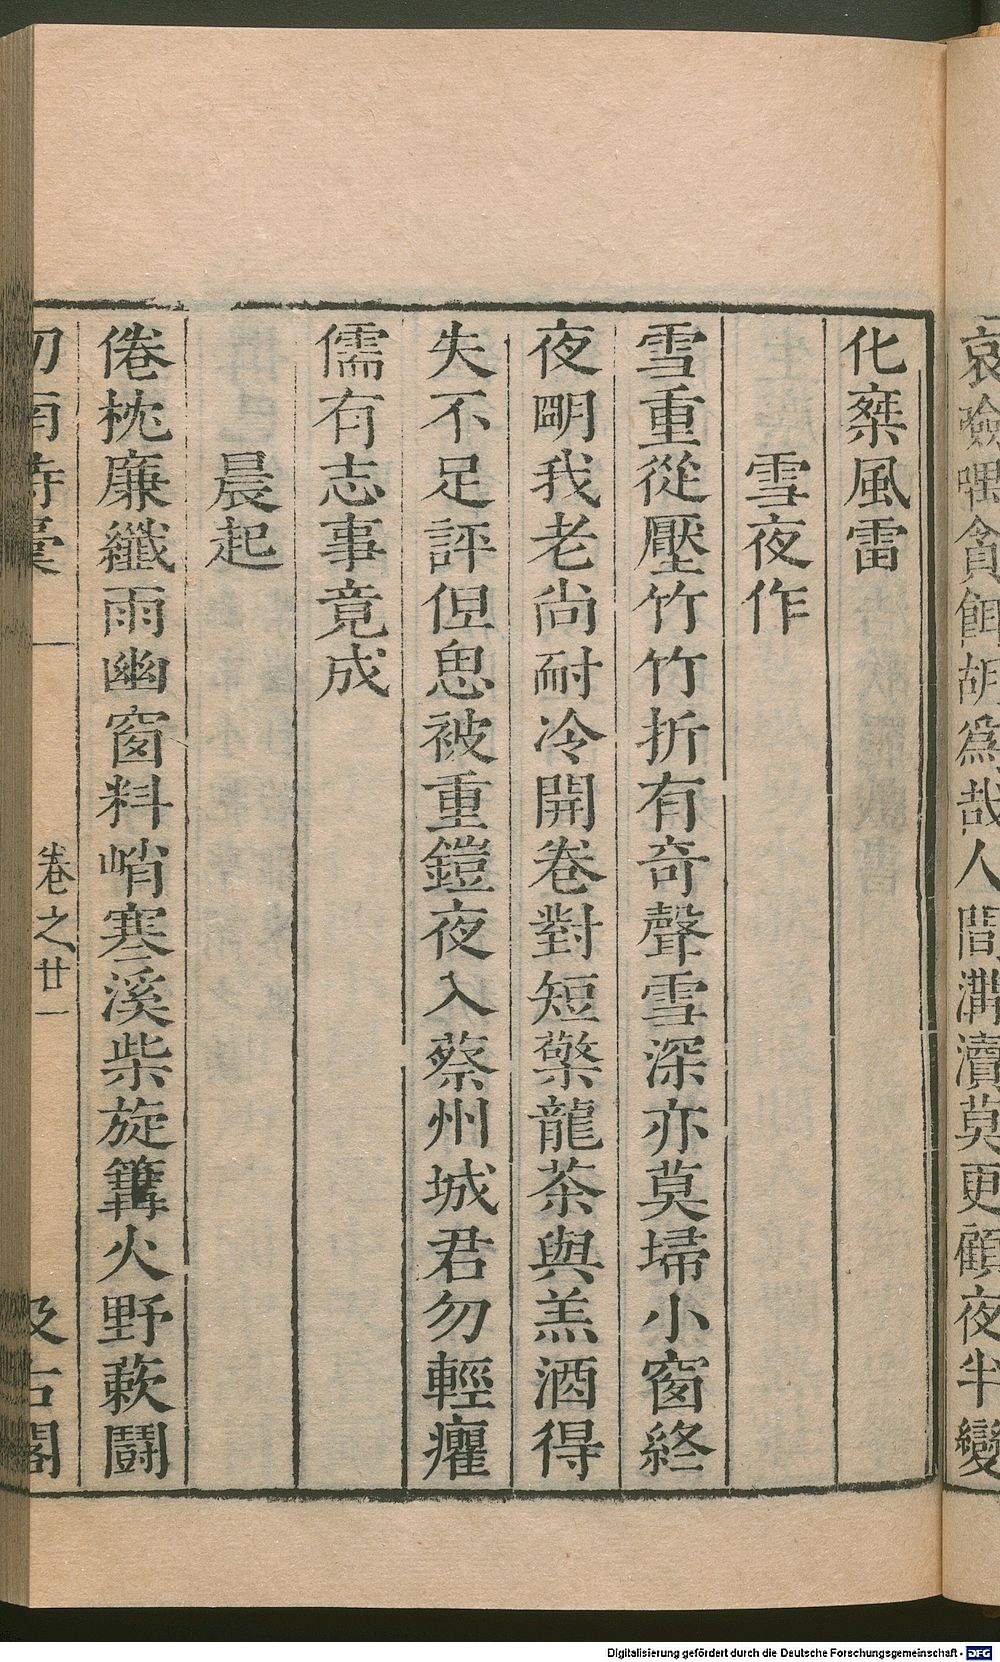 哀殮喂貪餌胡為哉人間溝瀆莫更顧夜半變
化桀風雷
雪夜作
雪重從壓竹竹折有奇聲雪深亦莫埽小窗終
夜朙我老尚耐冷開卷對短檠龍茶與羔酒得
失不足評但思被重鎧夜入蔡州城君勿輕癯
儒有志事竟成
晨起
倦枕廉纖雨幽窗料峭寒溪柴旋篝火野蔌鬭
劒南詩稾
卷之廿一
汲古閣
Digitalisierung gefördert durch die Deutsche Forschungsgemeinschaft - DFG